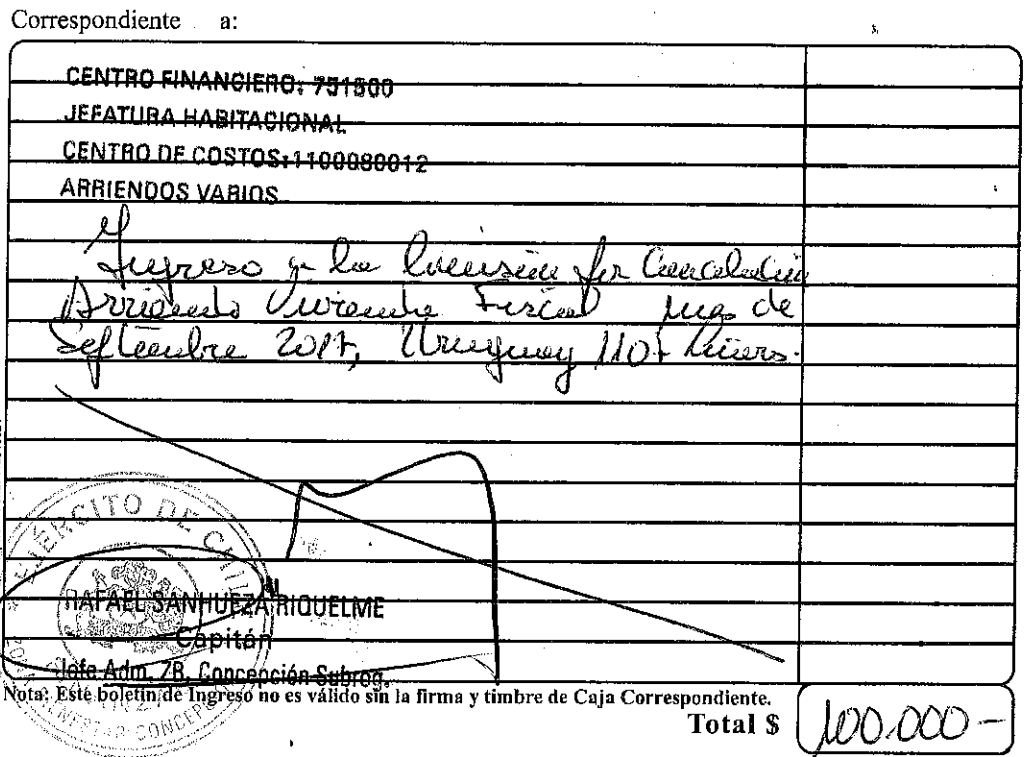 Correspondiente a:
CENTRO FINANCIERO: 751500
JEFATURA HABITACIONAL
CENTRO DE COSTOS: 1100080012
ARRIENDOS VARIOS
Ingreso a la Comisión por Cancelación
Arriendo Vivienda Fiscal mes de
Septiembre 2017, Uruguay 1107
EJÉRCITO DE CHILE
RAFAEL SANHUEZA RIQUELME
Capitán
Jefe Adm. ZB. Concepción Subrog.
Nota: Este boletin de Ingreso no es válido sin la firma y timbre de Caja Correspondiente.
Total $ 100.000-